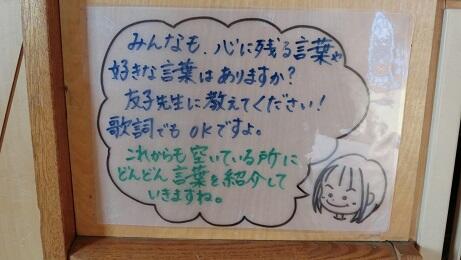 みんなも、心に残る言葉や
好きな言葉はありますか?
友子先生に教えてください!
歌詞でもOKですよ。
これからも空いている所に
どんどん言葉を紹介して
いきますね。